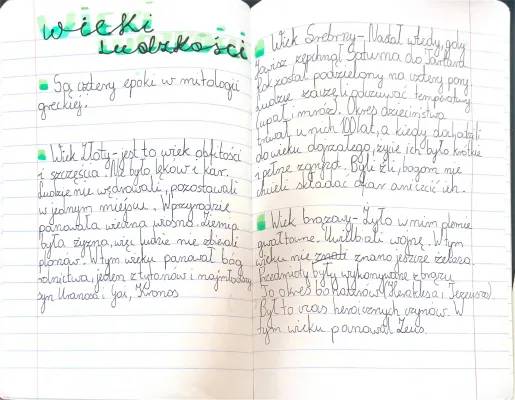 Wieki
Ludzkości
Są cztery epoki w mitologii
greckiej.
Wiek Złoty - jest to wiek obfitości
i szczęścia. Nie było lęków i kar.
Ludzie nie wędrowali, pozostawali
w jednym miejscu. W przyrodzie
panowała wieczna wiosna. Ziemia
była żyzna, więc ludzie nie zbierali
plonów. W tym wieku panował bóg
rolnictwa, jeden z tytanów i najmłodszy
syn Uranosa i Gai, Kronos
Wiek Srebrny - Nastał wtedy, gdy
Jowisz zepchnął Saturna do Tartaru.
Rok został podzielony na cztery pory.
Ludzie zaczęli odczuwać temperatury
(upał i mróz). Okres dzieciństwa
trwał u nich 100 lat, a kiedy dochodzili
do wieku dojrzałego, życie ich było krótkie
i pełne zgryzot. Byli źli, bogom nie
chcieli składać ofiar ani czcić ich.
Wiek brązowy - Żyło w nim plemie
gwałtowne. Uwielbiali wojnę. W tym
wieku nie znano jeszcze żelaza.
Przedmioty były wykonywane z brązu.
To okres bohaterów (Heraklesa i Tezeusza).
Był to czas heroicznych czynów. W
tym wieku panował Zeus.